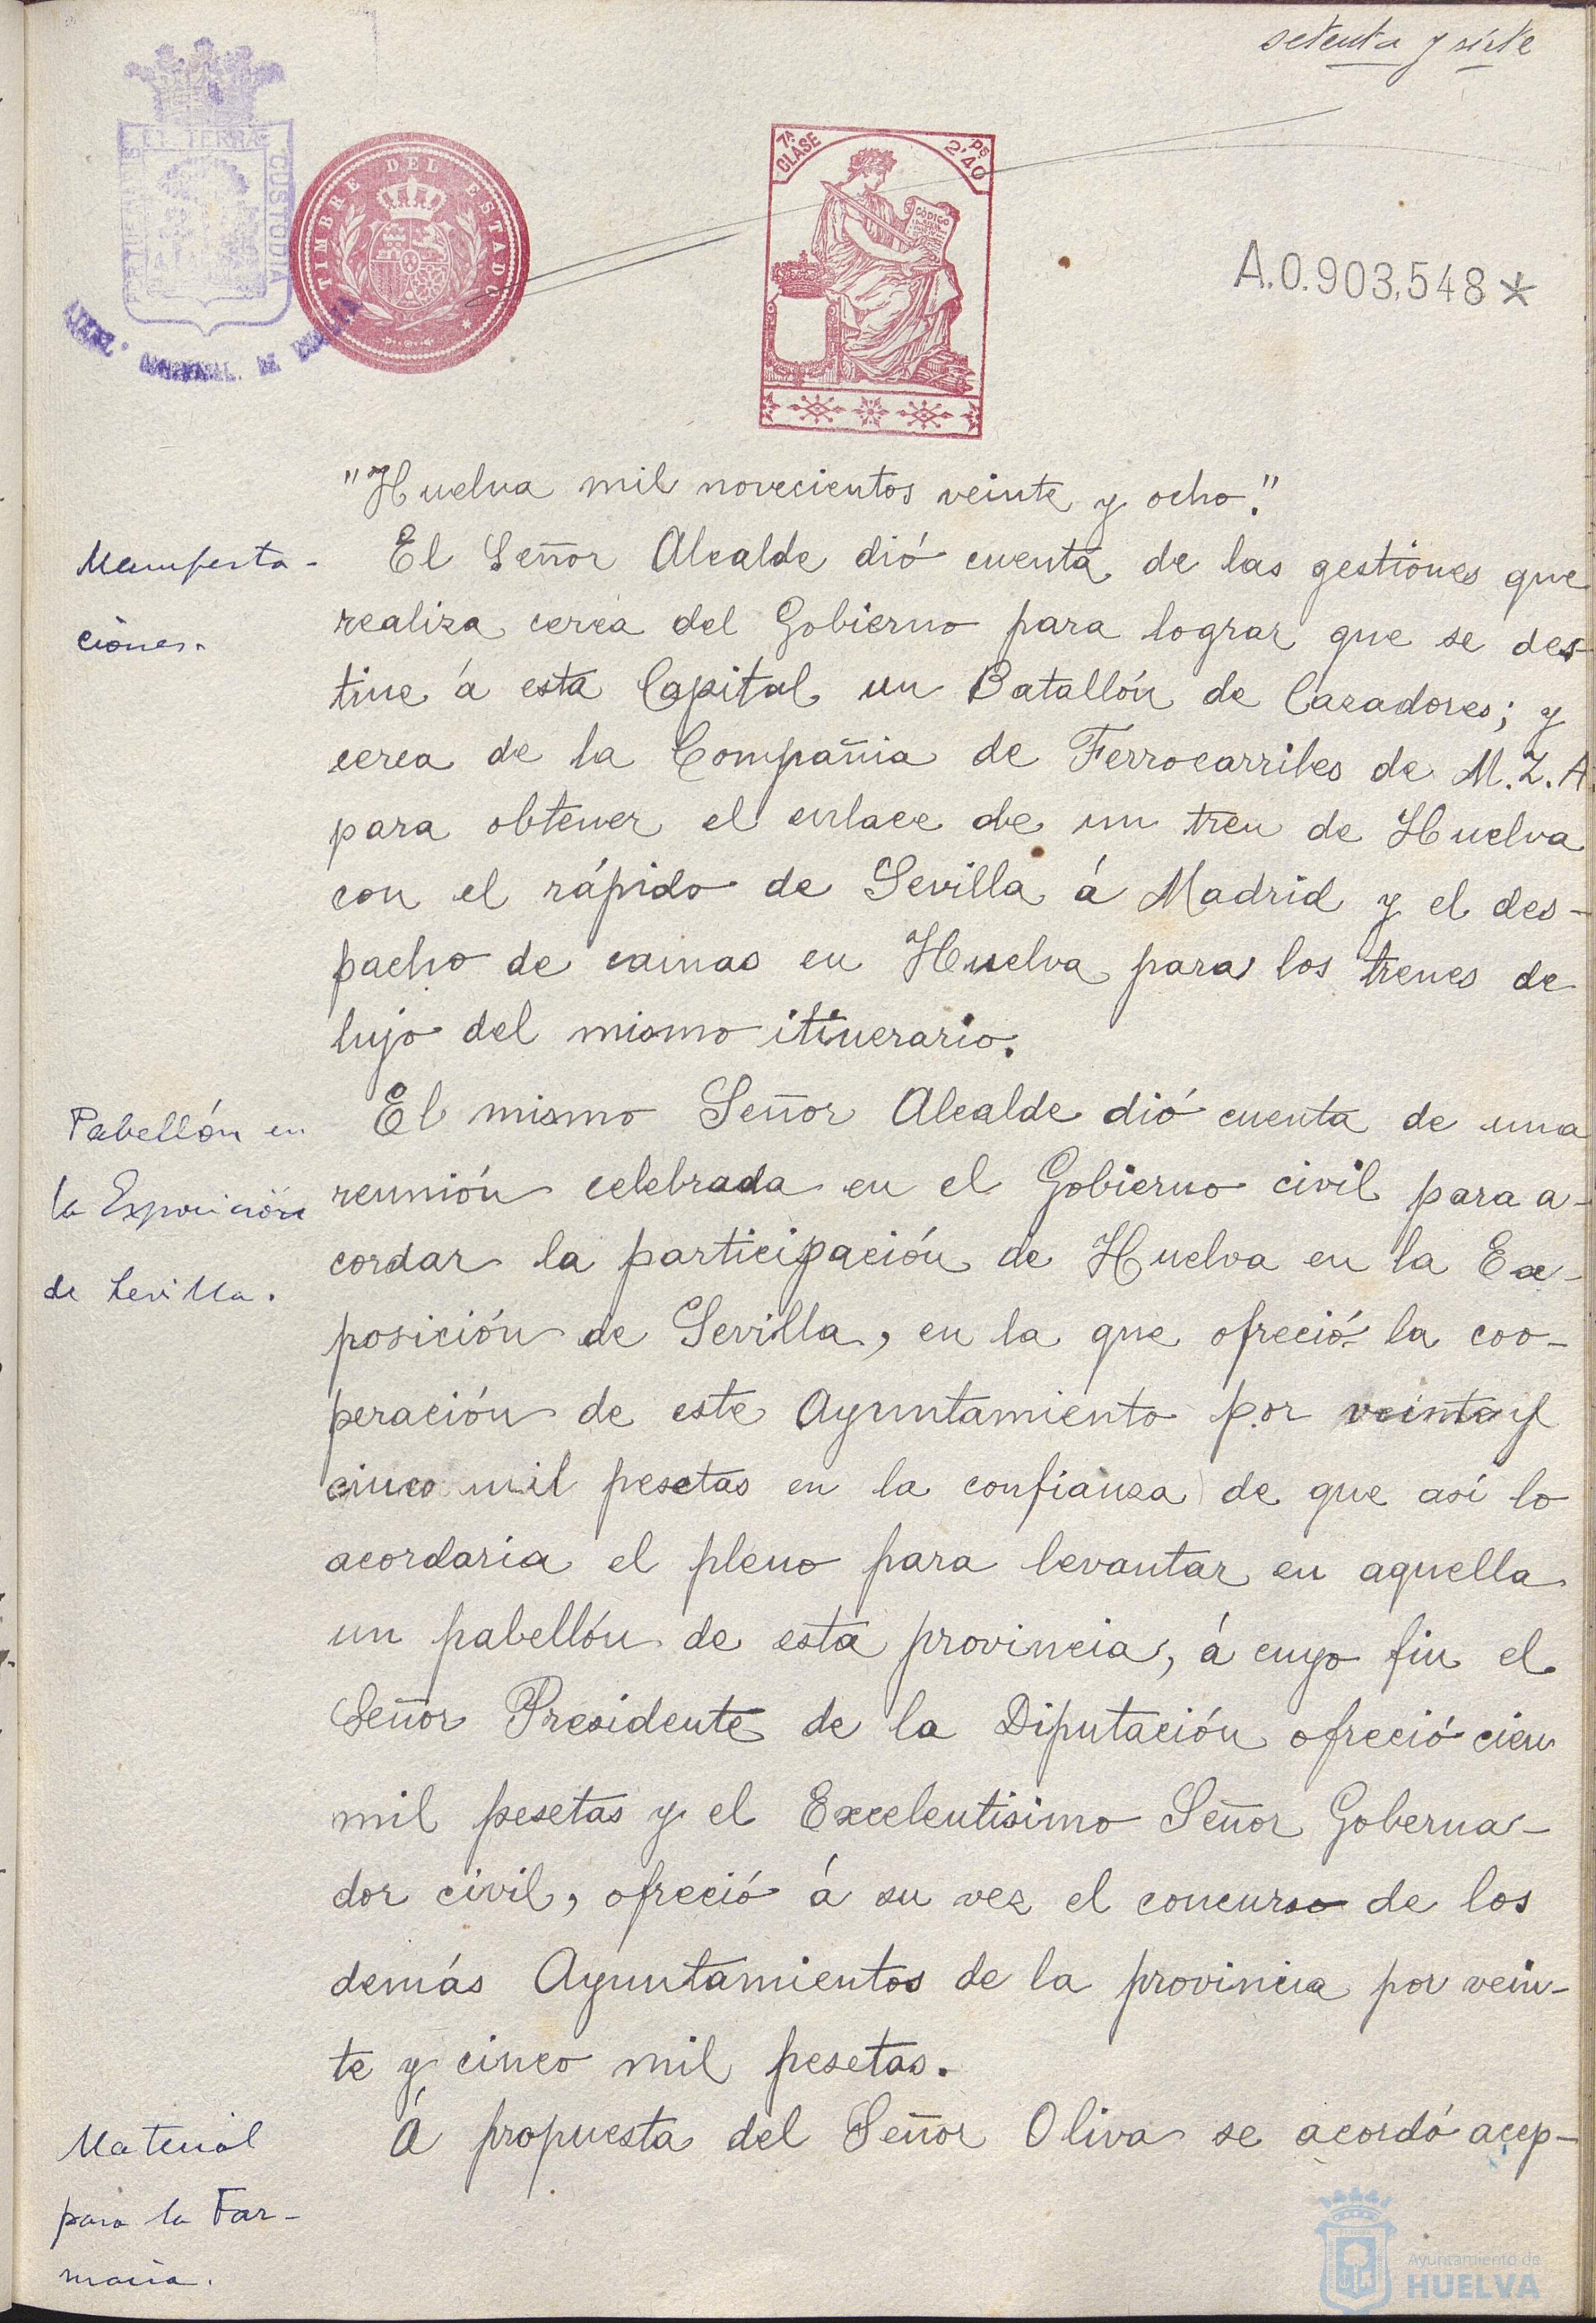 setenta y siete
ET TERRÆ
CUSTODIA
TIMBRE DEL ESTADO
7ª CLASE
Ps 2'40
CODIGO
A.0.903,548*
"Huelva mil novecientos veinte y ocho."
Manifesta-
ciones.
El Señor Alcalde dió cuenta de las gestiones que
realiza cerca del Gobierno para lograr que se des-
tine á esta Capital un Batallón de Cazadores; y
cerca de la Compañia de Ferrocarriles de M.Z.A.
para obtener el enlace de un tren de Huelva
con el rápido de Sevilla á Madrid y el des-
pacho de camas en Huelva para los trenes de
lujo del mismo itinerario.
Pabellón en
la Exposición
de Sevilla.
El mismo Señor Alcalde dió cuenta de una
reunión celebrada en el Gobierno civil para a-
cordar la participación de Huelva en la Ex-
posición de Sevilla, en la que ofreció la coo-
peración de este Ayuntamiento por veinte y
cinco mil pesetas en la confianza de que así lo
acordaria el pleno para levantar en aquella
un pabellón de esta provincia, á cuyo fin el
Señor Presidente de la Diputación ofreció cien
mil pesetas y el Excelentisimo Señor Goberna-
dor civil, ofreció á su vez el concurso de los
demás Ayuntamientos de la provincia por vein-
te y cinco mil pesetas.
Material
para la Far-
macia.
Á propuesta del Señor Oliva se acordó acep-
Ayuntamiento de
HUELVA